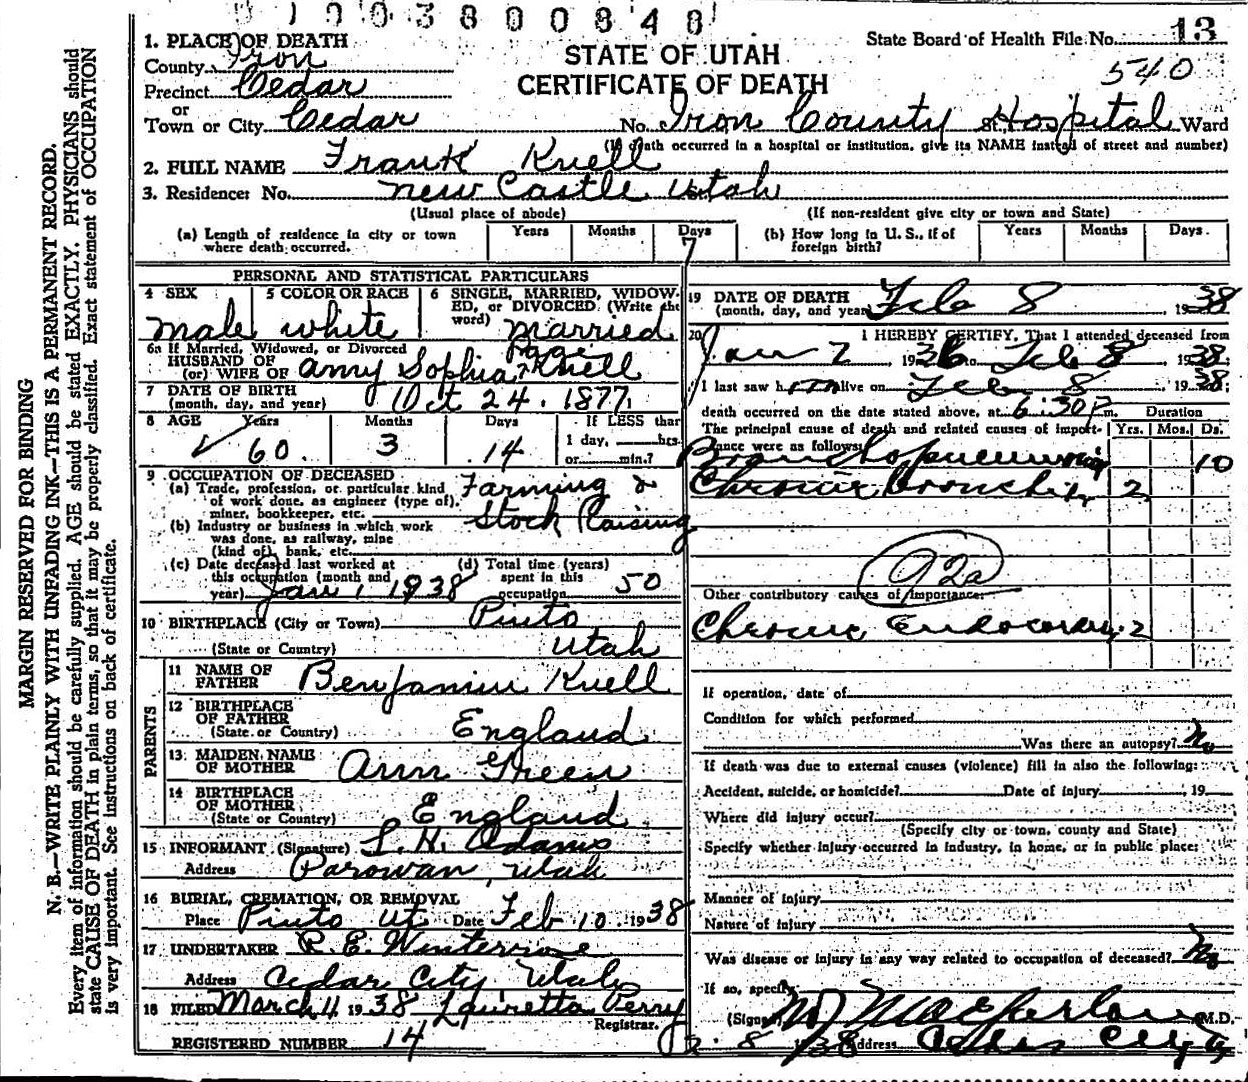 0 1 0 0 3 8 0 0 8 4 8
State Board of Health File No. 13
540
STATE OF UTAH
CERTIFICATE OF DEATH
1. PLACE OF DEATH
County Iron
Precinct Cedar
or
Town or City Cedar No. Iron County St. Hospital Ward
(If death occurred in a hospital or institution, give its NAME instead of street and number)
2. FULL NAME Frank Knell
3. Residence: No. New Castle Utah
(Usual place of abode) (If non-resident give city or town and State)
(a) Length of residence in city or town where death occurred. Years Months Days 7
(b) How long in U. S., if of foreign birth? Years Months Days.
PERSONAL AND STATISTICAL PARTICULARS
4 SEX 5 COLOR OR RACE 6 SINGLE, MARRIED, WIDOWED, or DIVORCED. (Write the word)
male white married
6a If Married, Widowed, or Divorced
HUSBAND OF
(or) WIFE OF Amy Sophia Page Knell
7 DATE OF BIRTH
(month, day, and year) Oct 24. 1877
8 AGE Years Months Days If LESS than
60 3 14 1 day, hrs.
or min.?
9 OCCUPATION OF DECEASED
(a) Trade, profession, or particular kind of work done, as engineer (type of), miner, bookkeeper, etc. Farming &
Stock Raising
(b) Industry or business in which work was done, as railway, mine (kind of) bank, etc.
(c) Date deceased last worked at this occupation (month and year) Jan 1 1938
(d) Total time (years) spent in this occupation 50
10 BIRTHPLACE (City or Town) Pinto
(State or Country) Utah
PARENTS
11 NAME OF FATHER Benjamin Knell
12 BIRTHPLACE OF FATHER
(State or Country) England
13 MAIDEN NAME OF MOTHER Ann Green
14 BIRTHPLACE OF MOTHER
(State or Country) England
15 INFORMANT (Signature) L. H. Adams
Address Parowan, Utah
16 BURIAL, CREMATION, OR REMOVAL
Place Pinto Ut Date Feb 10. 1938
17 UNDERTAKER
Address Cedar City Utah
18 FILED March 4 1938 Lauretta Perry
Registrar.
REGISTERED NUMBER 14
19 DATE OF DEATH
(month, day, and year) Feb 8 1938
20 I HEREBY CERTIFY, That I attended deceased from
Jan 2 1936 to Feb 8 1938
I last saw him alive on Feb 8 1938;
death occurred on the date stated above, at 6:30P m. Duration
The principal cause of death and related causes of importance were as follows: Yrs. Mos. Ds.
Bronchopneumonia 10
Chronic Bronchitis 2
92a
Other contributory causes of importance:
Chronic Endocarditis 2
If operation, date of
Condition for which performed
Was there an autopsy? No
If death was due to external causes (violence) fill in also the following:
Accident, suicide, or homicide? Date of injury , 19
Where did injury occur?
(Specify city or town, county and State)
Specify whether injury occurred in industry, in home, or in public place:
Manner of injury
Nature of injury
Was disease or injury in any way related to occupation of deceased? No
If so, specify
(Signed) Macfarlane M.D.
2-8 1938 Address Cedar City Ut
MARGIN RESERVED FOR BINDING
N. B.—WRITE PLAINLY WITH UNFADING INK—THIS IS A PERMANENT RECORD.
Every item of information should be carefully supplied. AGE should be stated EXACTLY. PHYSICIANS should
state CAUSE OF DEATH in plain terms, so that it may be properly classified. Exact statement of OCCUPATION
is very important. See instructions on back of certificate.